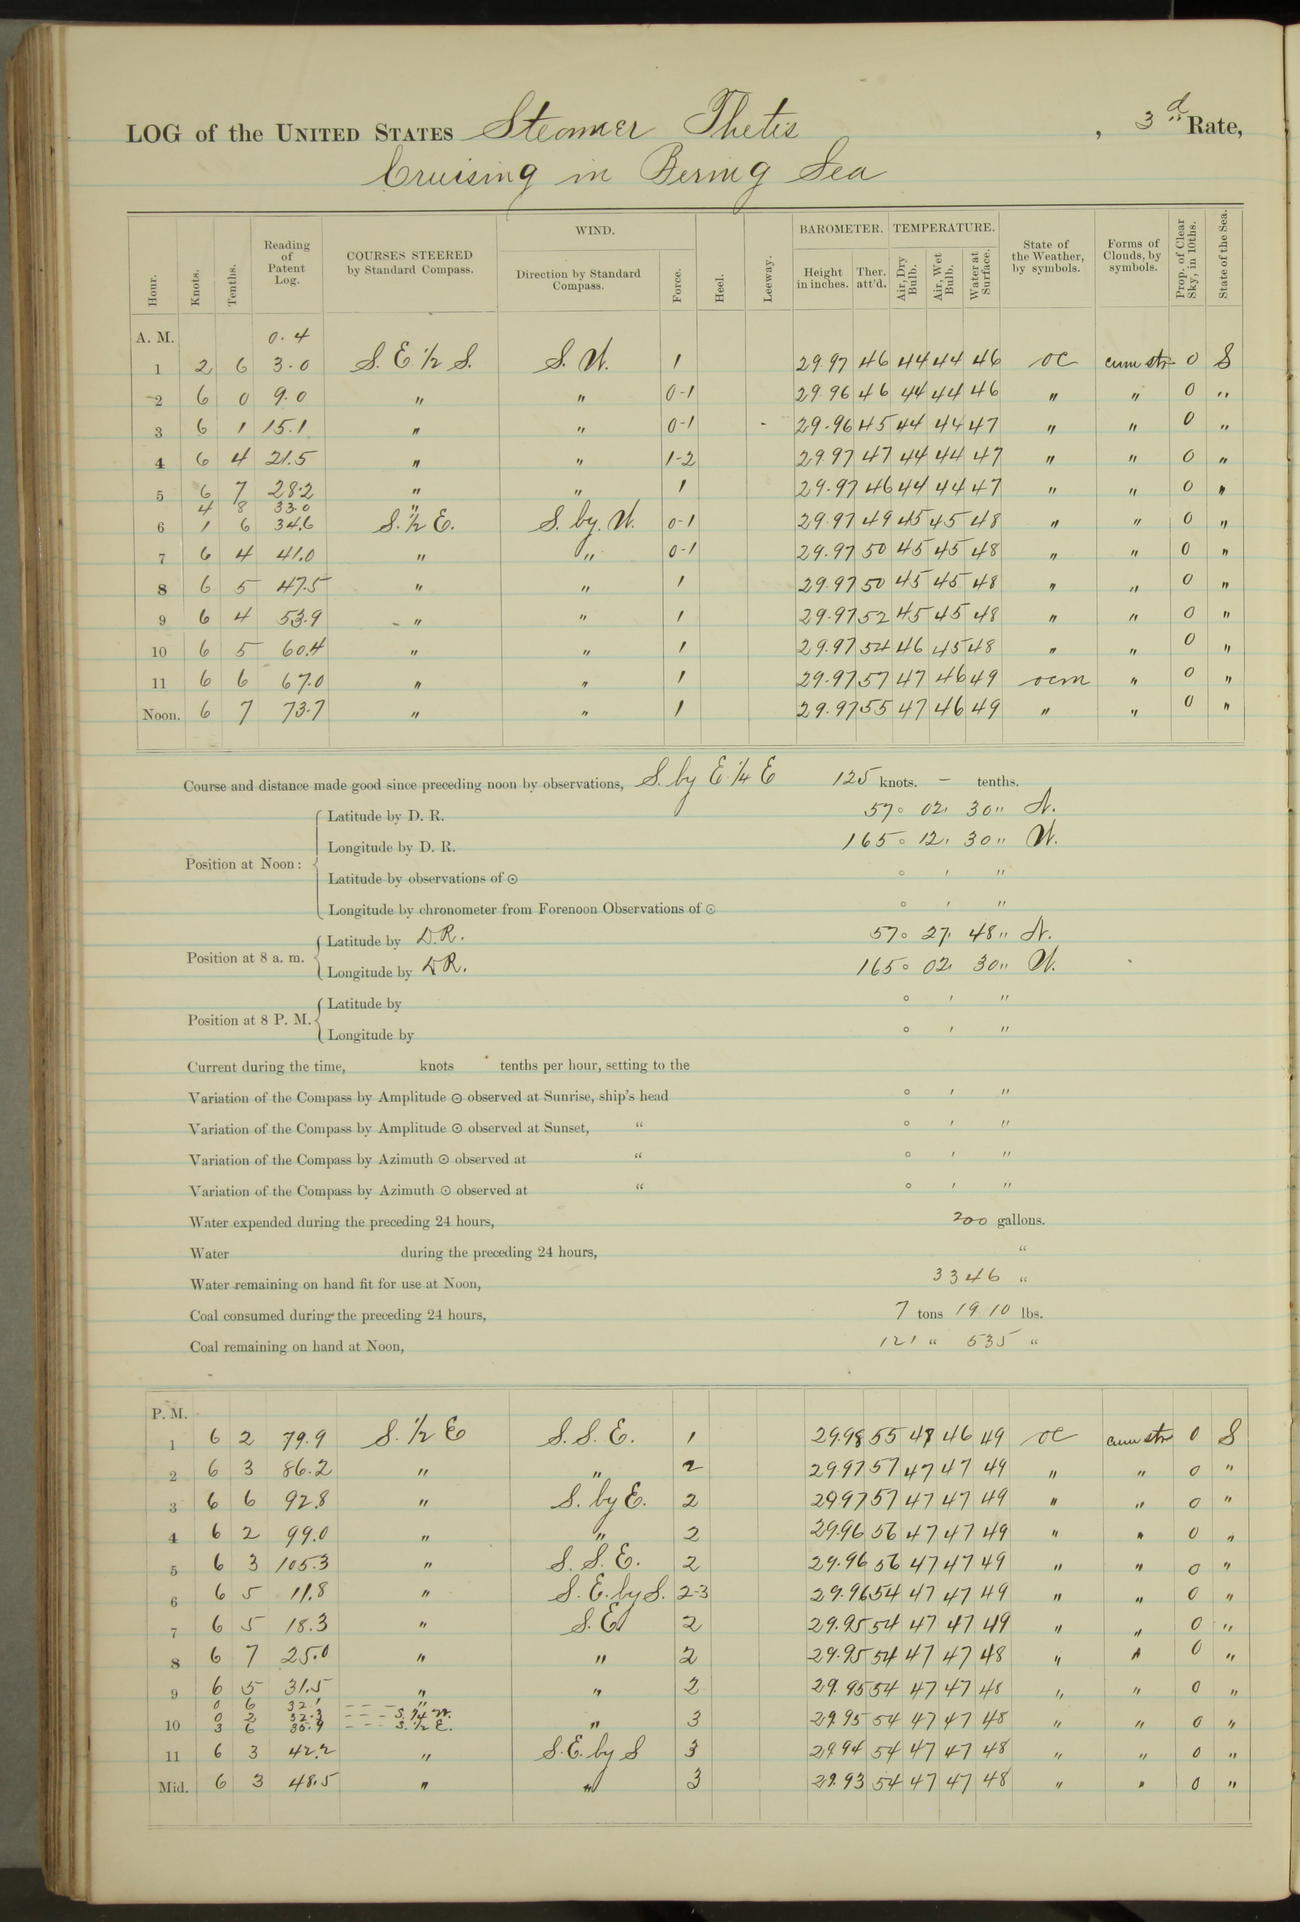 LOG of the UNITED STATES Steamer Thetis, 3d Rate,
Cruising in Bering Sea
Hour. Knots. Tenths. Reading of Patent Log. COURSES STEERED by Standard Compass. WIND. Direction by Standard Compass. Force. Heel. Leeway. BAROMETER. Height in inches. Ther. att'd. TEMPERATURE. Air, Dry Bulb. Air, Wet Bulb. Water at Surface. State of the Weather, by symbols. Forms of Clouds, by symbols. Prop. of Clear Sky, in 10ths. State of the Sea.
A. M. 0.4
1 2 6 3.0 S. E. 1/2 S. S. W. 1 29.97 46 44 44 46 oc cum str 0 S
2 6 0 9.0 " " 0-1 29.96 46 44 44 46 " " 0 "
3 6 1 15.1 " " 0-1 29.96 45 44 44 47 " " 0 "
4 6 4 21.5 " " 1-2 29.97 47 44 44 47 " " 0 "
5 6 7 28.2 " " 1 29.97 46 44 44 47 " " 0 "
4 8 33.0 "
6 1 6 34.6 S. 1/2 E. S. by. W. 0-1 29.97 49 45 45 48 " " 0 "
7 6 4 41.0 " " 0-1 29.97 50 45 45 48 " " 0 "
8 6 5 47.5 " " 1 29.97 50 45 45 48 " " 0 "
9 6 4 53.9 " " 1 29.97 52 45 45 48 " " 0 "
10 6 5 60.4 " " 1 29.97 54 46 45 48 " " 0 "
11 6 6 67.0 " " 1 29.97 57 47 46 49 ocm " 0 "
Noon. 6 7 73.7 " " 1 29.97 55 47 46 49 " " 0 "
Course and distance made good since preceding noon by observations, S. by E. 1/4 E 125 knots. — tenths.
Position at Noon:
Latitude by D. R. 57° 02' 30" N.
Longitude by D. R. 165° 12' 30" W.
Latitude by observations of ☉ ° ' "
Longitude by chronometer from Forenoon Observations of ☉ ° ' "
Position at 8 a. m.
Latitude by D.R. 57° 27' 48" N.
Longitude by D.R. 165° 02' 30" W.
Position at 8 P. M.
Latitude by ° ' "
Longitude by ° ' "
Current during the time, knots tenths per hour, setting to the
Variation of the Compass by Amplitude ☉ observed at Sunrise, ship's head ° ' "
Variation of the Compass by Amplitude ☉ observed at Sunset, " ° ' "
Variation of the Compass by Azimuth ☉ observed at " ° ' "
Variation of the Compass by Azimuth ☉ observed at " ° ' "
Water expended during the preceding 24 hours, 200 gallons.
Water during the preceding 24 hours, "
Water remaining on hand fit for use at Noon, 3346 "
Coal consumed during the preceding 24 hours, 7 tons 1910 lbs.
Coal remaining on hand at Noon, 121 " 535 "
P. M.
1 6 2 79.9 S. 1/2 E S. S. E. 1 29.98 55 47 46 49 oc cum str 0 S
2 6 3 86.2 " " 2 29.97 57 47 47 49 " " 0 "
3 6 6 92.8 " S. by E. 2 29.97 57 47 47 49 " " 0 "
4 6 2 99.0 " " 2 29.96 56 47 47 49 " " 0 "
5 6 3 105.3 " S. S. E. 2 29.96 56 47 47 49 " " 0 "
6 6 5 11.8 " S. E. by S. 2-3 29.96 54 47 47 49 " " 0 "
7 6 5 18.3 " S. E. 2 29.95 54 47 47 49 " " 0 "
8 6 7 25.0 " " 2 29.95 54 47 47 48 " " 0 "
9 6 5 31.5 " " 2 29.95 54 47 47 48 " " 0 "
0 6 32.1 - - - "
0 2 32.3 - - - S. 1/4 W.
10 3 6 35.9 - - - S. 1/2 E. " 3 29.95 54 47 47 48 " " 0 "
11 6 3 42.2 " S. E. by S 3 29.94 54 47 47 48 " " 0 "
Mid. 6 3 48.5 " " 3 29.93 54 47 47 48 " " 0 "